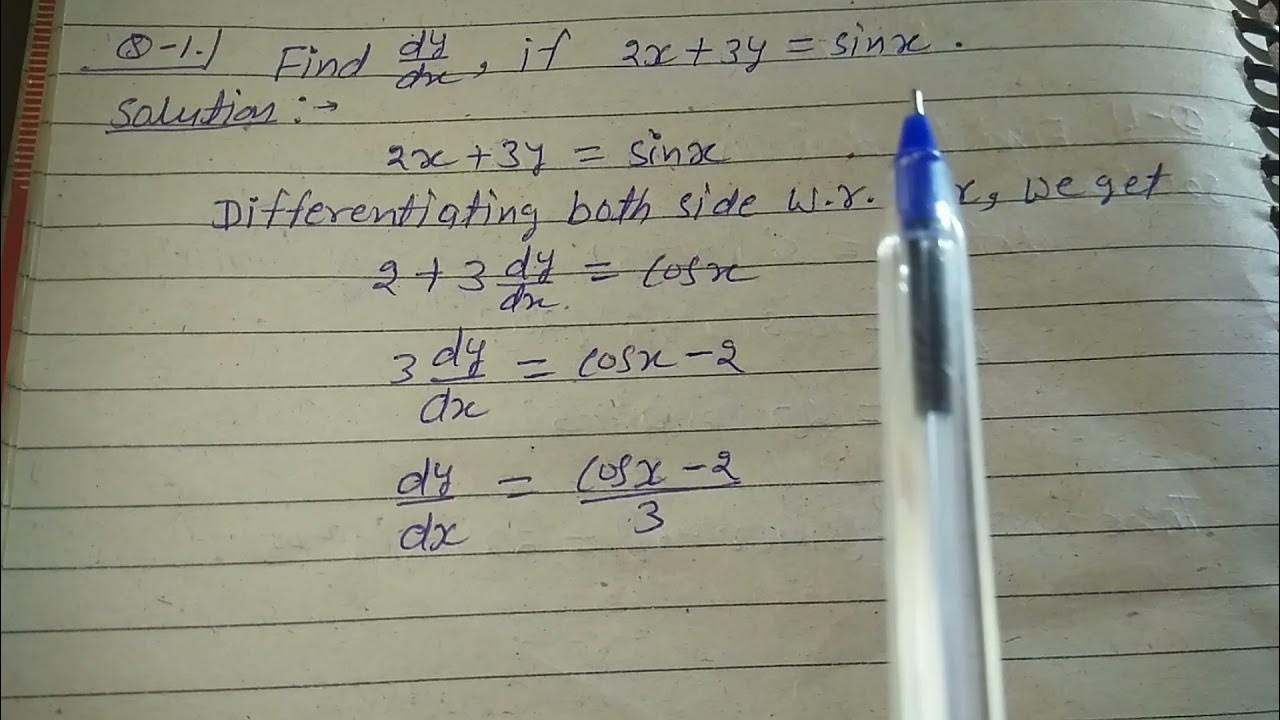 Q-1.) Find dy/dx, if 2x+3y = sinx.
Solution :→
2x+3y = sinx
Differentiating both side w.r. x, we get
2+3 dy/dx = cosx
3 dy/dx = cosx-2
dy/dx = cosx-2/3